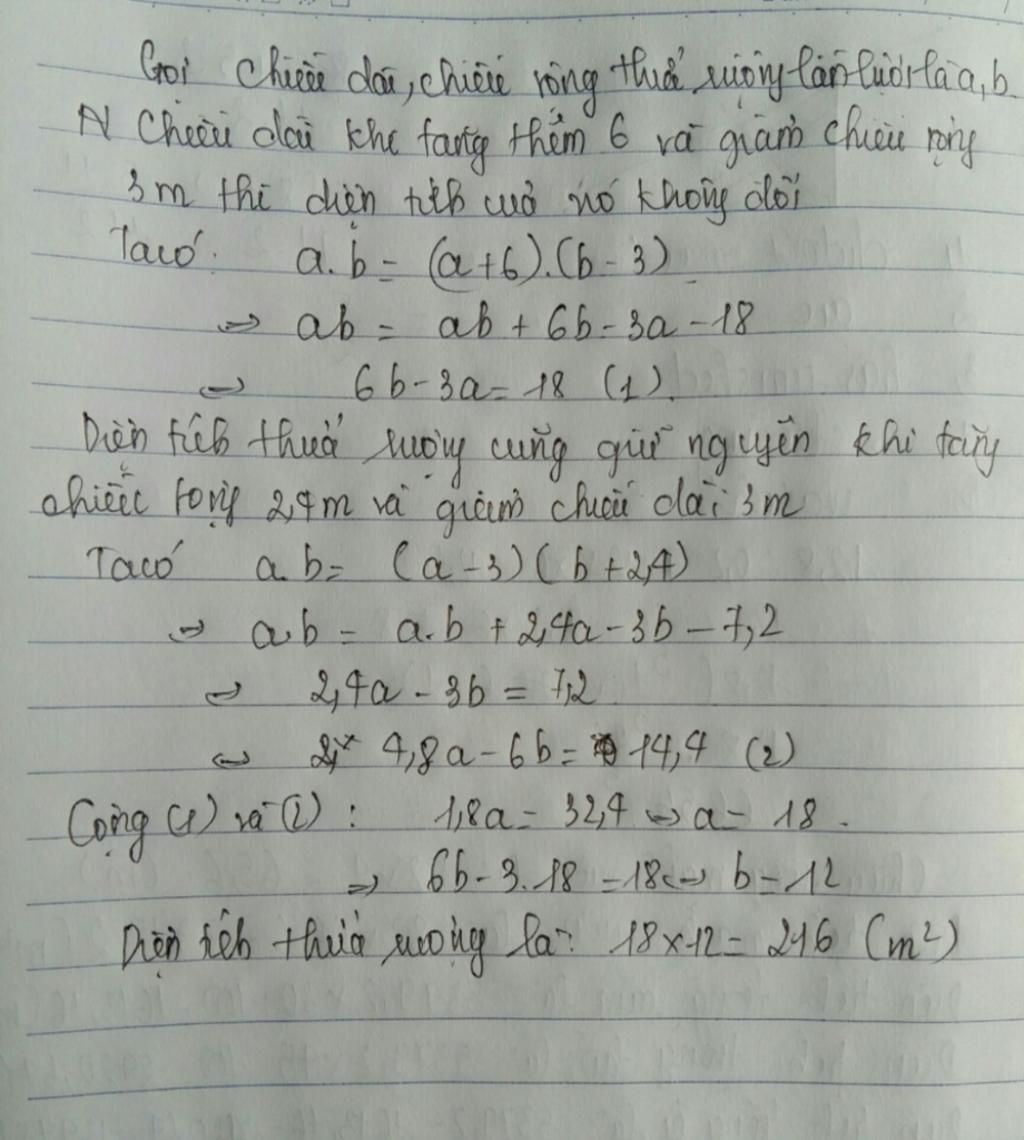 Gọi chiều dài, chiều rộng thửa ruộng lần lượt là a, b
Chiều dài khi tăng thêm 6 và giảm chiều rộng
3m thì diện tích của nó không đổi
Ta có: a.b = (a+6).(b-3)
=> ab = ab + 6b - 3a - 18
<=> 6b - 3a = 18 (1)
Diện tích thửa ruộng cũng giữ nguyên khi tăng
chiều rộng 2,4m và giảm chiều dài 3m
Ta có a.b = (a-3)(b+2,4)
=> a.b = a.b + 2,4a - 3b - 7,2
<=> 2,4a - 3b = 7,2
<=> 4,8a - 6b = 14,4 (2)
Cộng (1) và (2): 1,8a = 32,4 <=> a = 18.
=> 6b - 3.18 = 18 <=> b = 12
Diện tích thửa ruộng là: 18 x 12 = 216 (m²)